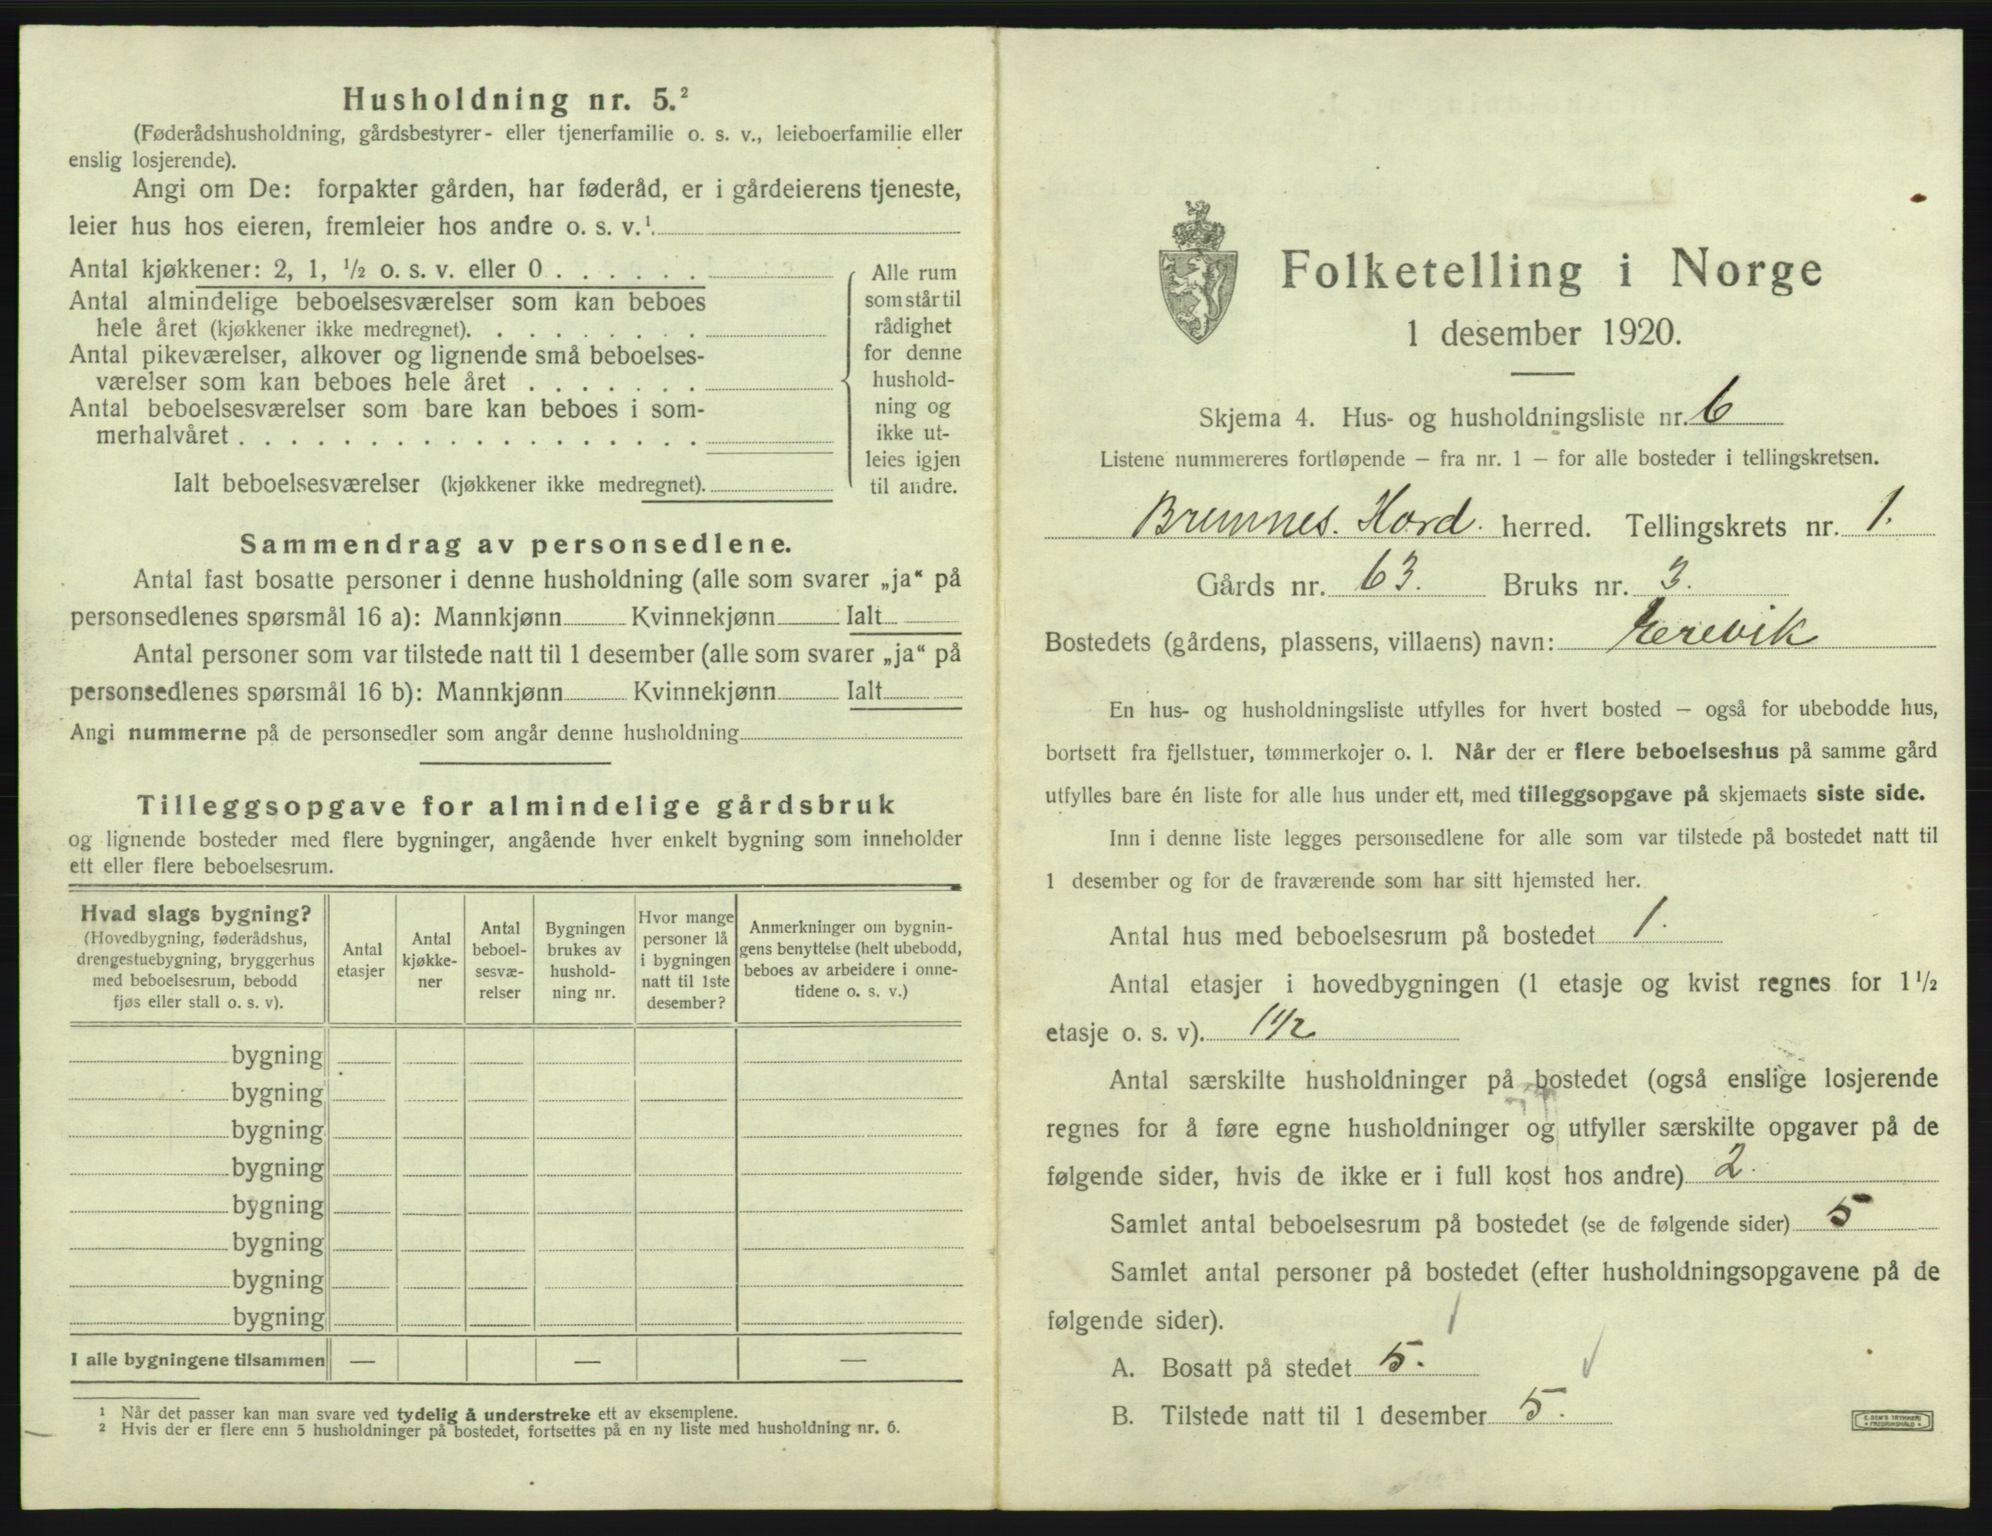 Husholdning nr. 5.²
(Føderådshusholdning, gårdsbestyrer- eller tjenerfamilie o. s. v., leieboerfamilie eller
enslig losjerende).
Angi om De: forpakter gården, har føderåd, er i gårdeierens tjeneste,
leier hus hos eieren, fremleier hos andre o. s. v.¹.
Antal kjøkkener: 2, 1, ½ o. s. v. eller 0 . . . . . .
Antal almindelige beboelsesværelser som kan beboes
hele året (kjøkkener ikke medregnet). . . . . . . . .
Antal pikeværelser, alkover og lignende små beboelses-
værelser som kan beboes hele året . . . . . . .
Antal beboelsesværelser som bare kan beboes i som-
merhalvåret . . . . . . . . . . . . . . . . . .
Ialt beboelsesværelser (kjøkkener ikke medregnet).
Alle rum
som står til
rådighet
for denne
hushold-
ning og
ikke ut-
leies igjen
til andre.
Sammendrag av personsedlene.
Antal fast bosatte personer i denne husholdning (alle som svarer „ja“ på
personsedlenes spørsmål 16 a): Mannkjønn Kvinnekjønn Ialt
Antal personer som var tilstede natt til 1 desember (alle som svarer „ja“ på
personsedlenes spørsmål 16 b): Mannkjønn Kvinnekjønn Ialt
Angi nummerne på de personsedler som angår denne husholdning
Tilleggsopgave for almindelige gårdsbruk
og lignende bosteder med flere bygninger, angående hver enkelt bygning som inneholder
ett eller flere beboelsesrum.
Hvad slags bygning?
(Hovedbygning, føderådshus,
drengestuebygning, bryggerhus
med beboelsesrum, bebodd
fjøs eller stall o. s. v).
Antal
etasjer
Antal
kjøkke-
ner
Antal
beboel-
sesvæ-
relser
Bygningen
brukes av
hushold-
ning nr.
Hvor mange
personer lå
i bygningen
natt til 1ste
desember?
Anmerkninger om bygnin-
gens benyttelse (helt ubebodd,
beboes av arbeidere i onne-
tidene o. s. v.)
bygning
bygning
bygning
bygning
bygning
bygning
bygning
bygning
I alle bygningene tilsammen — — —
¹ Når det passer kan man svare ved tydelig å understreke ett av eksemplene.
² Hvis der er flere enn 5 husholdninger på bostedet, fortsettes på en ny liste med husholdning nr. 6.
Folketelling i Norge
1 desember 1920.
Skjema 4. Hus- og husholdningsliste nr. 6
Listene nummereres fortløpende — fra nr. 1 — for alle bosteder i tellingskretsen.
Bremnes. Hord. herred. Tellingskrets nr. 1.
Gårds nr. 63. Bruks nr. 3.
Bostedets (gårdens, plassens, villaens) navn:
En hus- og husholdningsliste utfylles for hvert bosted — også for ubebodde hus,
bortsett fra fjellstuer, tømmerkojer o. l. Når der er flere beboelseshus på samme gård
utfylles bare én liste for alle hus under ett, med tilleggsopgave på skjemaets siste side.
Inn i denne liste legges personsedlene for alle som var tilstede på bostedet natt til
1 desember og for de fraværende som har sitt hjemsted her.
Antal hus med beboelsesrum på bostedet 1.
Antal etasjer i hovedbygningen (1 etasje og kvist regnes for 1½
etasje o. s. v). 1½
Antal særskilte husholdninger på bostedet (også enslige losjerende
regnes for å føre egne husholdninger og utfyller særskilte opgaver på de
følgende sider, hvis de ikke er i full kost hos andre) 2.
Samlet antal beboelsesrum på bostedet (se de følgende sider) 5
Samlet antal personer på bostedet (efter husholdningsopgavene på de
følgende sider).
A. Bosatt på stedet 5.
B. Tilstede natt til 1 desember 5.